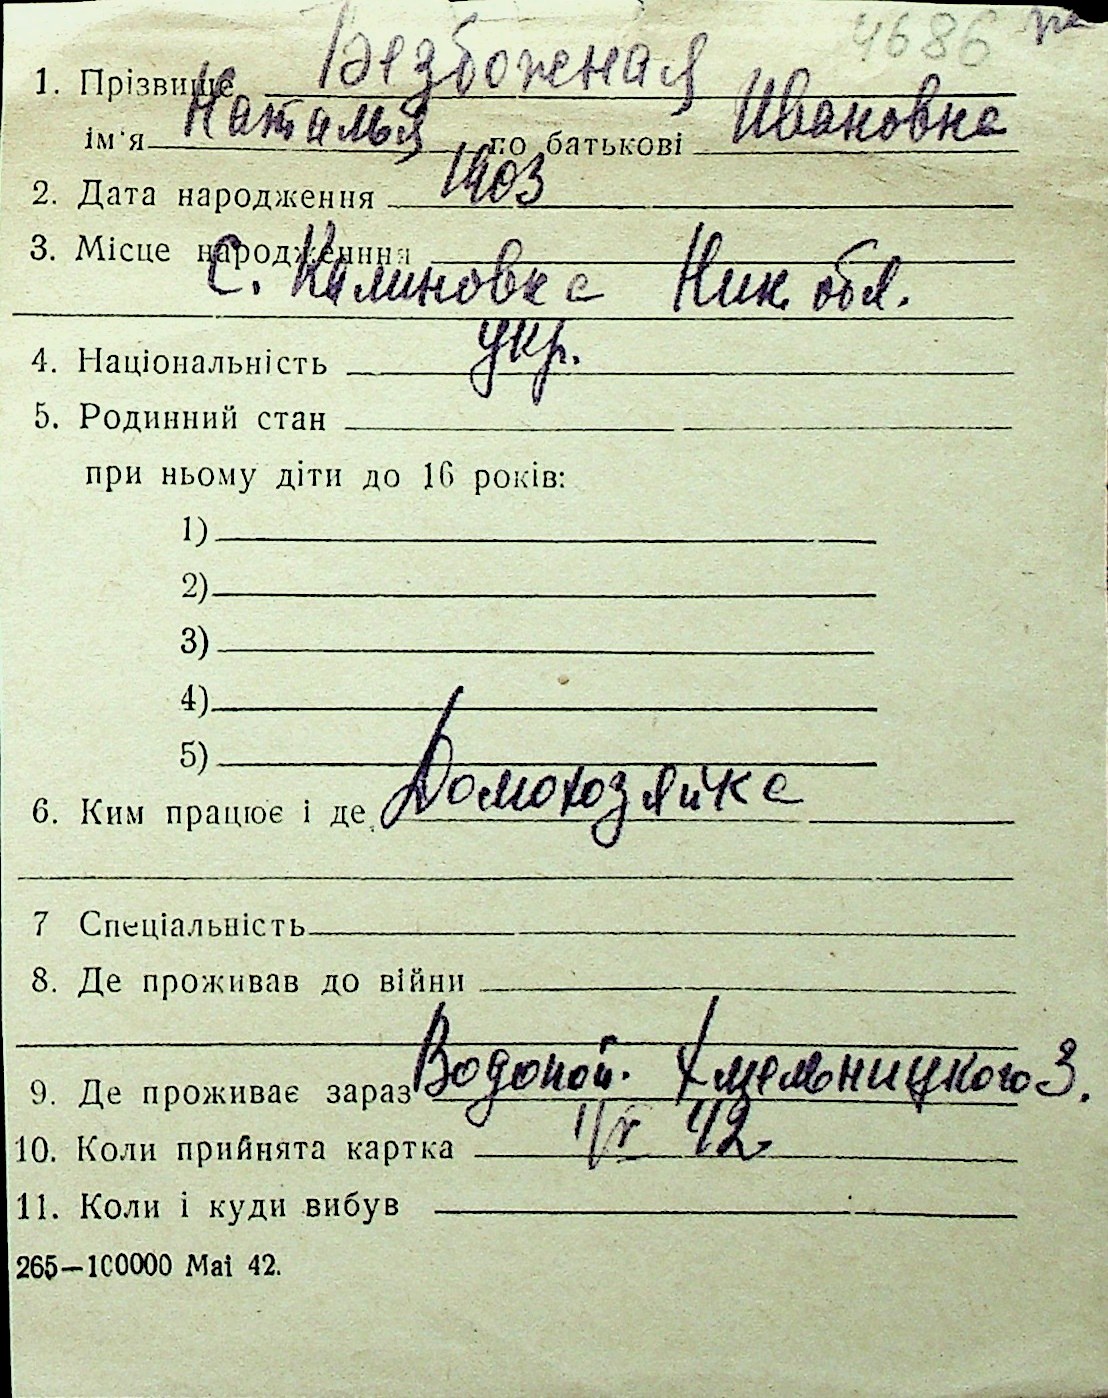 4686
1. Прізвище Безбоженая
ім'я Наталья по батькові Ивановна
2. Дата народження 1903
3. Місце народженння
С. Калиновка Ник. обл.
4. Національність укр.
5. Родинний стан
при ньому діти до 16 років:
1)
2)
3)
4)
5)
6. Ким працює і де Домохозяйка
7 Спеціальність
8. Де проживав до війни
9. Де проживає зараз Водопой. Хмельницкого 3.
10. Коли прийнята картка 42
11. Коли і куди вибув
265—100000 Mai 42.